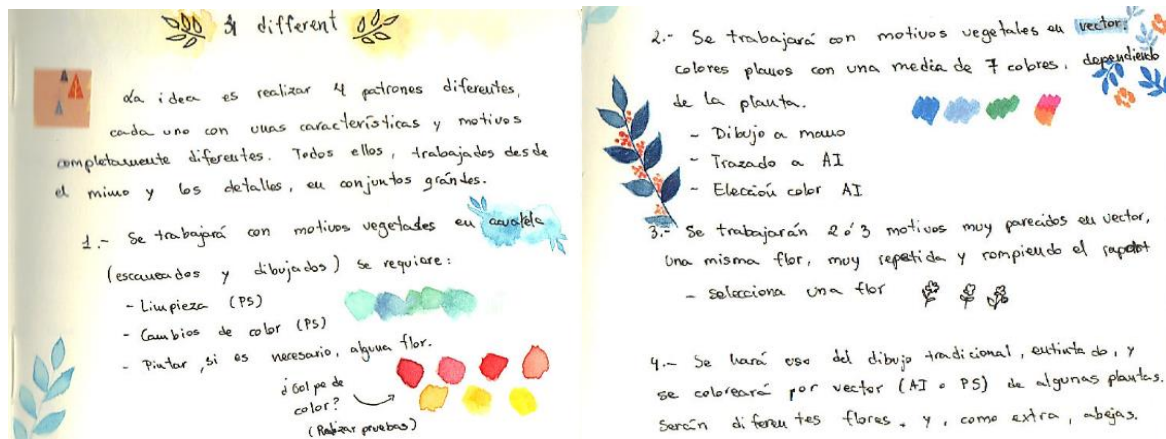 different
La idea es realizar 4 patrones diferentes,
cada uno con unas características y motivos
completamente diferentes. Todos ellos, trabajados desde
el mimo y los detalles, en conjuntos grandes.
1.- Se trabajará con motivos vegetales en acuarela
(escaneados y dibujados) Se requiere:
- Limpieza (PS)
- Cambios de color (PS)
- Pintar, si es necesario, alguna flor.
¿Golpe de
color?
(Realizar pruebas)
2.- Se trabajará con motivos vegetales en vector:
colores planos con una media de 7 colores, dependiendo
de la planta.
- Dibujo a mano
- Trazado a AI
- Elección color AI
3.- Se trabajarán 2 ó 3 motivos muy parecidos en vector,
Una misma flor, muy repetida y rompiendo el rapport
- selecciona una flor
4.- Se hará uso del dibujo tradicional, entintado, y
se coloreará por vector (AI o PS) de algunas plantas.
Serán diferentes flores, y, como extra, abejas.